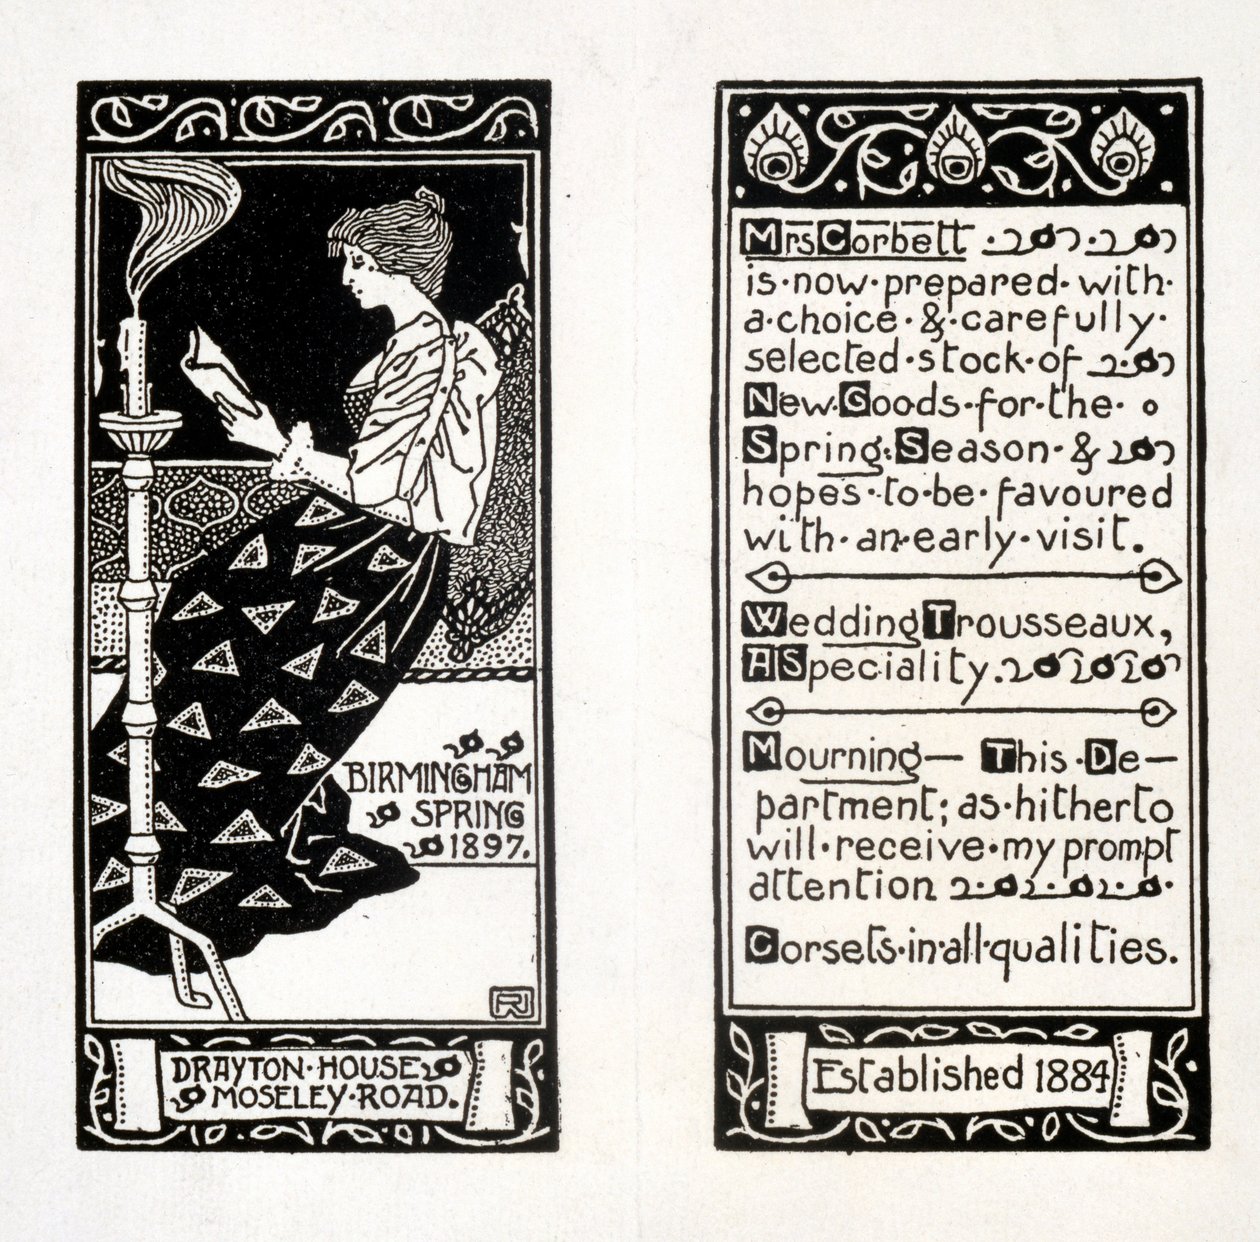 BIRMINGHAM
SPRING
1897.
DRAYTON·HOUSE
MOSELEY·ROAD.
Mrs Corbett
is·now·prepared·with·
a·choice·&·carefully·
selected·stock·of
New·Goods·for·the·
Spring·Season·&
hopes·to·be·favoured
with·an·early·visit.
Wedding Trousseaux,
A Speciality.
Mourning— This·De—
partment; as·hitherto
will·receive·my prompt
attention
Corsets·in·all·qualities.
Established 1884